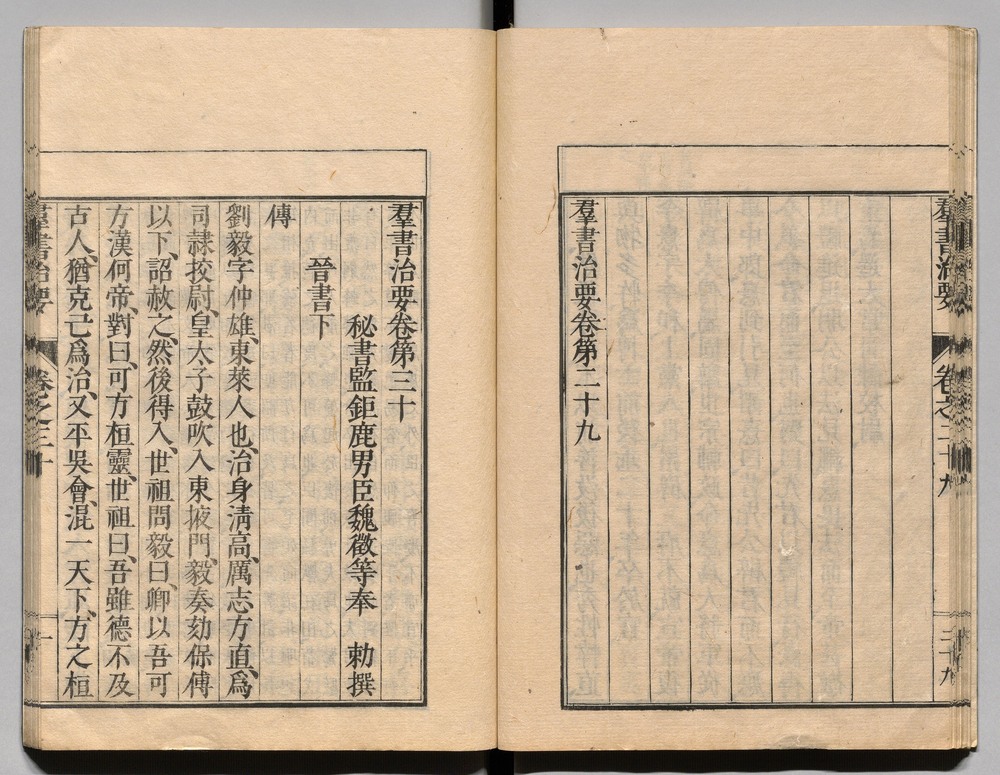 羣書治要卷之二十九
二十九
羣書治要卷第二十九
羣書治要卷第三十
秘書監鉅鹿男臣魏徵等奉　勅撰
晉書下
傳
劉毅字仲雄、東萊人也、治身清高、厲志方直、爲
司隸挍尉、皇太子鼓吹入東掖門、毅奏劾保傅
以下、詔赦之、然後得入、世祖問毅曰、卿以吾可
方漢何帝、對曰、可方桓靈、世祖曰、吾雖德不及
古人、猶克己爲治、又平吳會、混一天下、方之桓
羣書治要
卷之三十
一